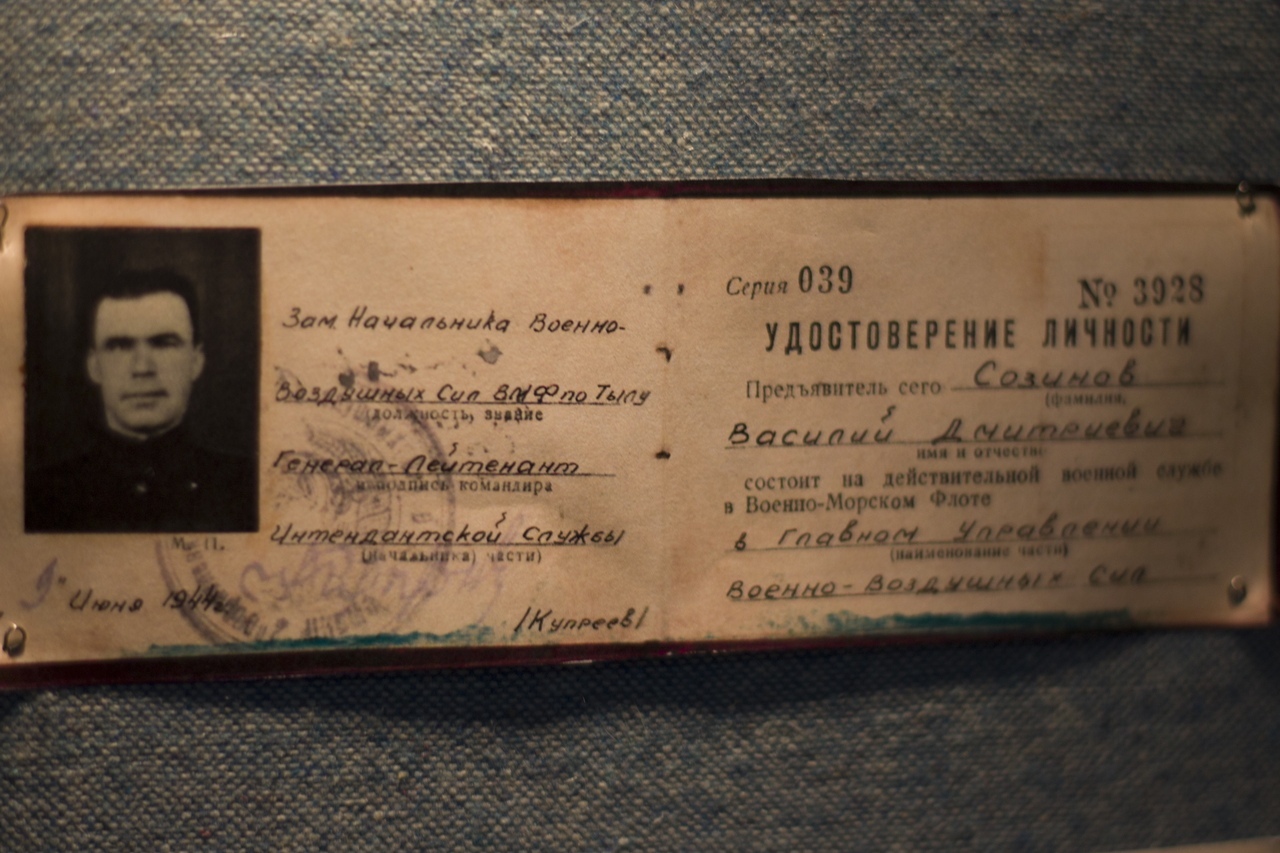 Зам. Начальника Военно-
Воздушных Сил ВМФ по Тылу
(должность, звание
Генерал-Лейтенант
и подпись командира
Интендантской Службы
(начальника) части)
М. П.
9" Июня 1944г.
/Купреев/
Серия 039
№ 3928
УДОСТОВЕРЕНИЕ ЛИЧНОСТИ
Предъявитель сего Созинов
(фамилия,
Василий Дмитриевич
имя и отчество
состоит на действительной военной службе
в Военно-Морском Флоте
в Главном Управлении
(наименование части)
Военно-Воздушных Сил